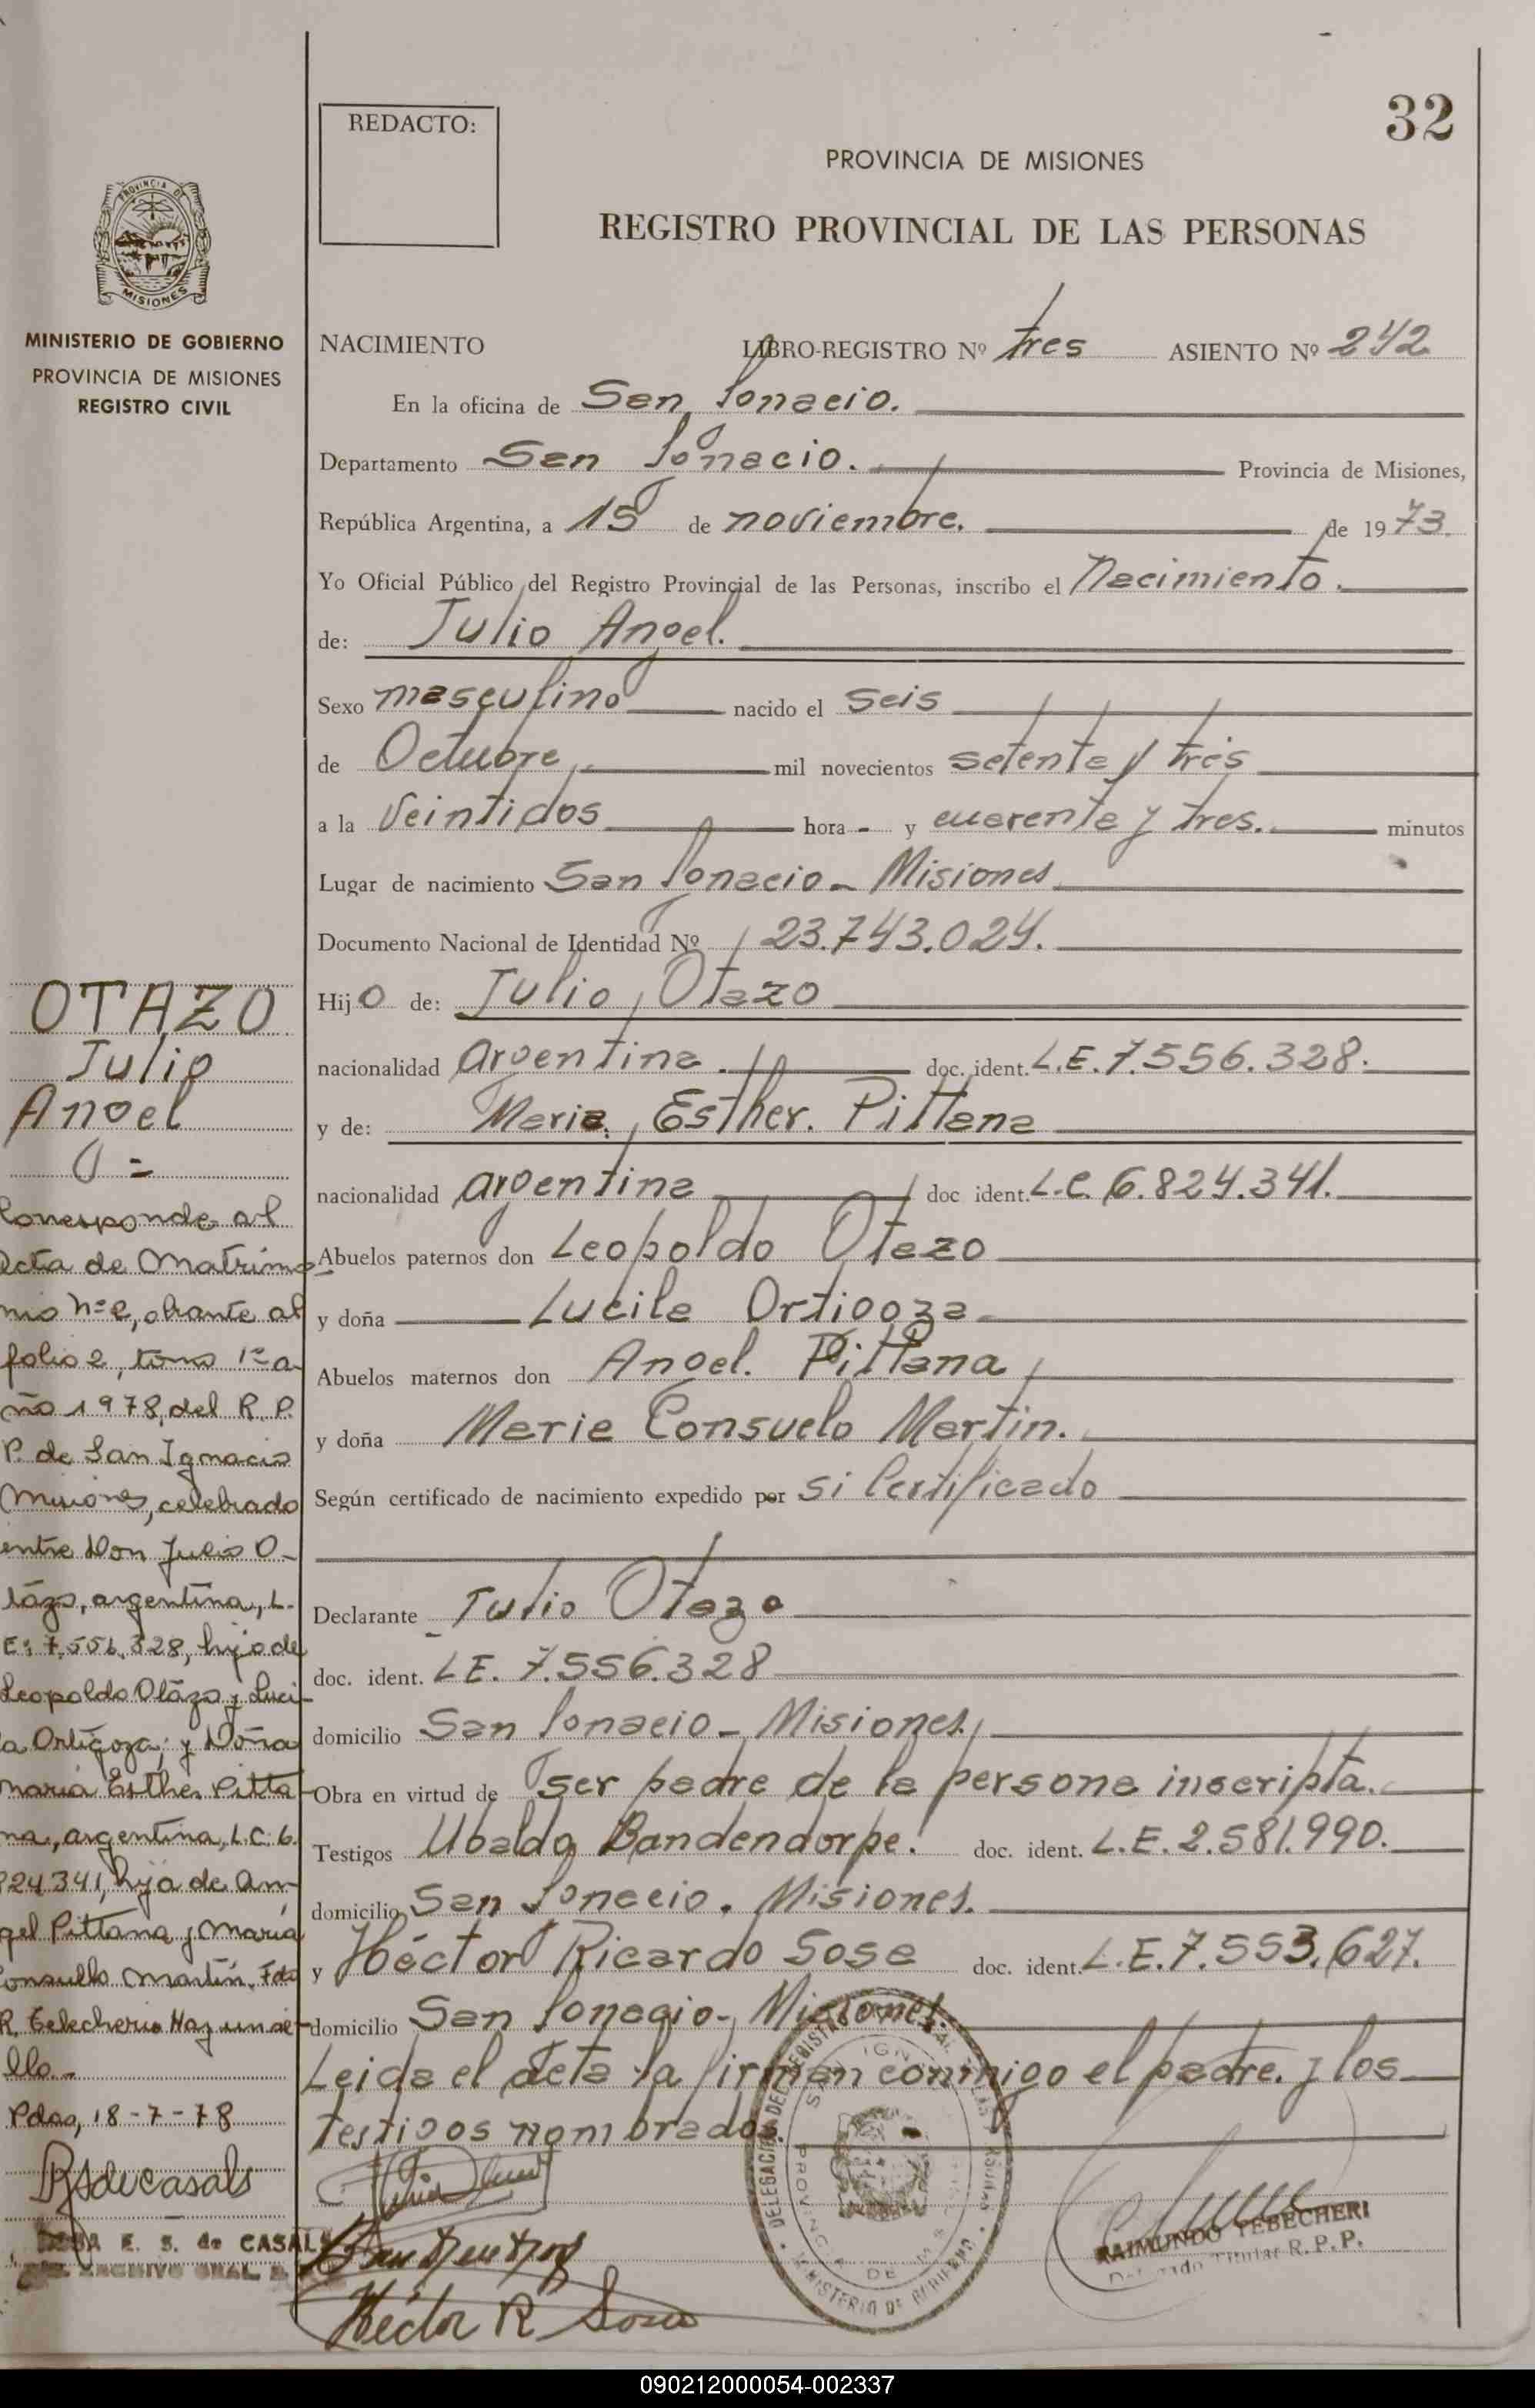 32
REDACTO:
PROVINCIA DE MISIONES
REGISTRO PROVINCIAL DE LAS PERSONAS
PROVINCIA DE
MISIONES
MINISTERIO DE GOBIERNO
PROVINCIA DE MISIONES
REGISTRO CIVIL
NACIMIENTO LIBRO-REGISTRO Nº tres ASIENTO Nº 242
En la oficina de San Ignacio.
Departamento San Ignacio. Provincia de Misiones,
República Argentina, a 15 de noviembre. de 1973.
Yo Oficial Público del Registro Provincial de las Personas, inscribo el Nacimiento.
de: Julio Angel.
Sexo masculino nacido el seis
de Octubre, mil novecientos setenta y tres
a la veintidos hora - y cuarenta y tres. minutos
Lugar de nacimiento San Ignacio - Misiones
Documento Nacional de Identidad Nº 23.743.024.
Hijo de: Julio Otazo
nacionalidad argentina. doc. ident. L.E. 7.556.328.
y de: Maria Esther. Pittana
nacionalidad argentina doc ident. L.C. 6.824.341.
Abuelos paternos don Leopoldo Otazo
y doña Lucila Ortigoza
Abuelos maternos don Angel. Pittana
y doña Maria Consuelo Martin.
Según certificado de nacimiento expedido por si Certificado
Declarante Julio Otazo
doc. ident. L.E. 7.556.328
domicilio San Ignacio - Misiones,
Obra en virtud de ser padre de la persona inscripta.
Testigos Ubaldo Bandendorpe. doc. ident. L.E. 2.581.990.
domicilio San Ignacio. Misiones.
y Héctor Ricardo Sosa doc. ident. L.E. 7.553.627.
domicilio San Ignacio - Misiones.
Leida el acta la firman conmigo el padre. y los
testigos nombrados.
Héctor R Sosa
RAIMUNDO TEBECHERI
Delegado Titular R. P. P.
OTAZO
Julio
Angel
=
Corresponde al
acta de Matrimo
nio nº 2, obrante al
folio 2, tomo 1º a
ño 1978, del R. P.
P. de San Ignacio
Misiones, celebrado
entre Don Julio O-
tázo, argentina, L.
E: 7.556.328, hijo de
Leopoldo Otázo y Luci-
la Ortigoza; y Doña
maria Esther Pitta
na, argentina, L.C. 6.
824341, hija de An-
gel Pittana y María
Consuello Martín. Fdo
R. Tebecherie Hay un se-
llo.-
Pdas, 18-7-78
E. S. de CASALS
ARCHIVO GRAL.
090212000054-002337